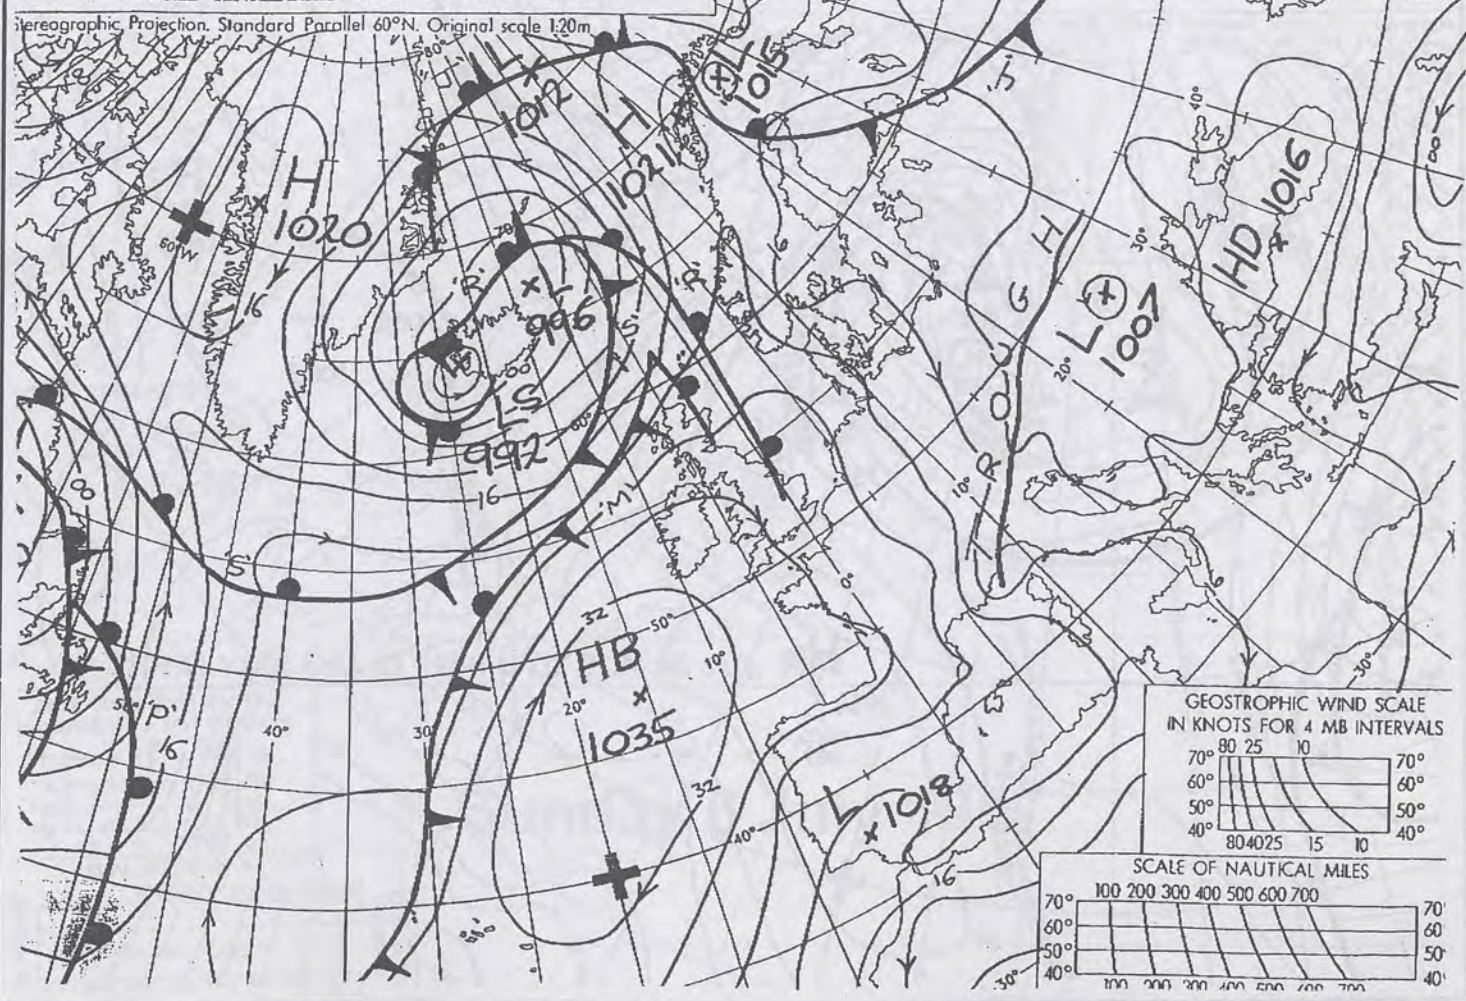 Stereographic Projection. Standard Parallel 60°N. Original scale 1:20m
80°
L
1012
H
1021
L
1015
'J'
40°
HD 1016
00
H
1020
60°W
16
70°
'R'
L
996
'S'
'R'
L-S
992
00
60°
16
'M'
TROUGH
30°
L
1007
20°
10°
0°
16
16
08
'S'
32
50°
HB
1035
10°
20°
32
50°
'P'
16
40°
30°
40°
L
1018
16
30°
30°
GEOSTROPHIC WIND SCALE
IN KNOTS FOR 4 MB INTERVALS
80 25 10
70° 70°
60° 60°
50° 50°
40° 40°
80 40 25 15 10
SCALE OF NAUTICAL MILES
100 200 300 400 500 600 700
70° 70°
60° 60
50° 50°
40° 40°
100 200 300 400 500 600 700